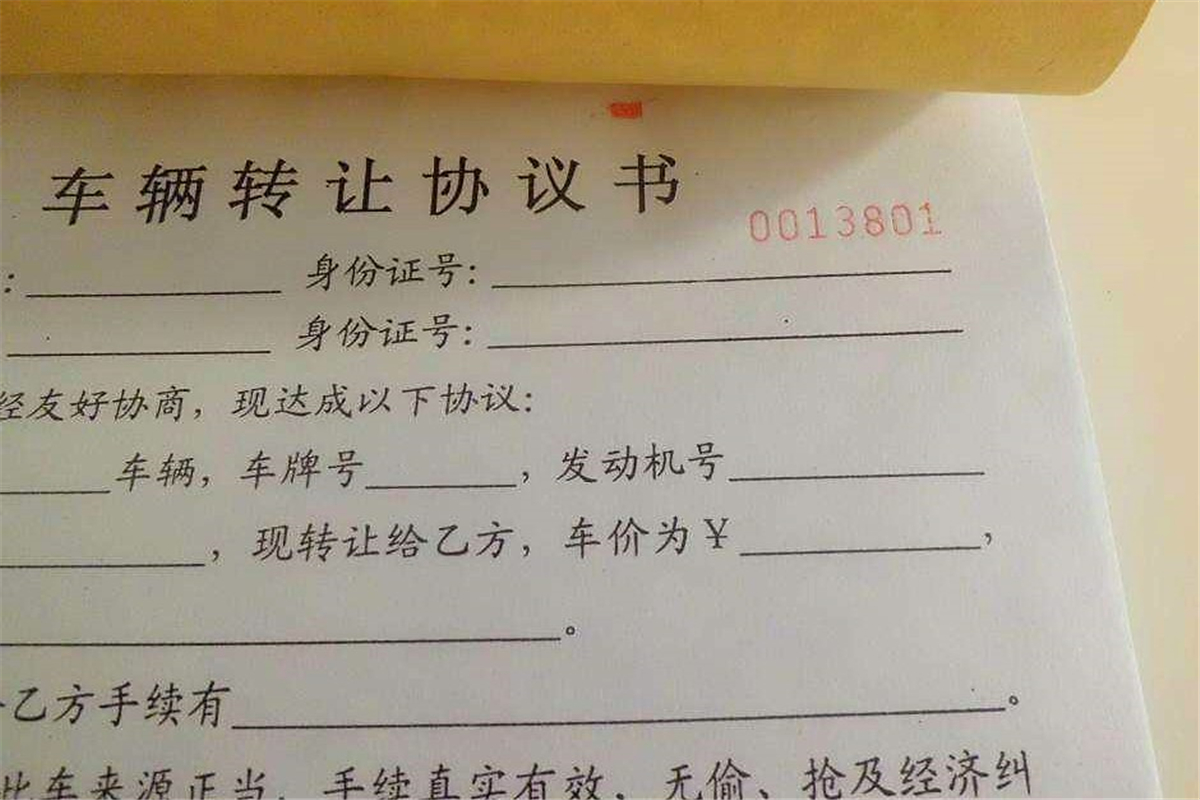 车辆转让协议书
0013801
：________ 身份证号：____________
________ 身份证号：____________
经友好协商，现达成以下协议：
____车辆，车牌号____，发动机号________
________，现转让给乙方，车价为￥________，
________________。
乙方手续有________________________。
此车来源正当，手续真实有效，无偷、抢及经济纠